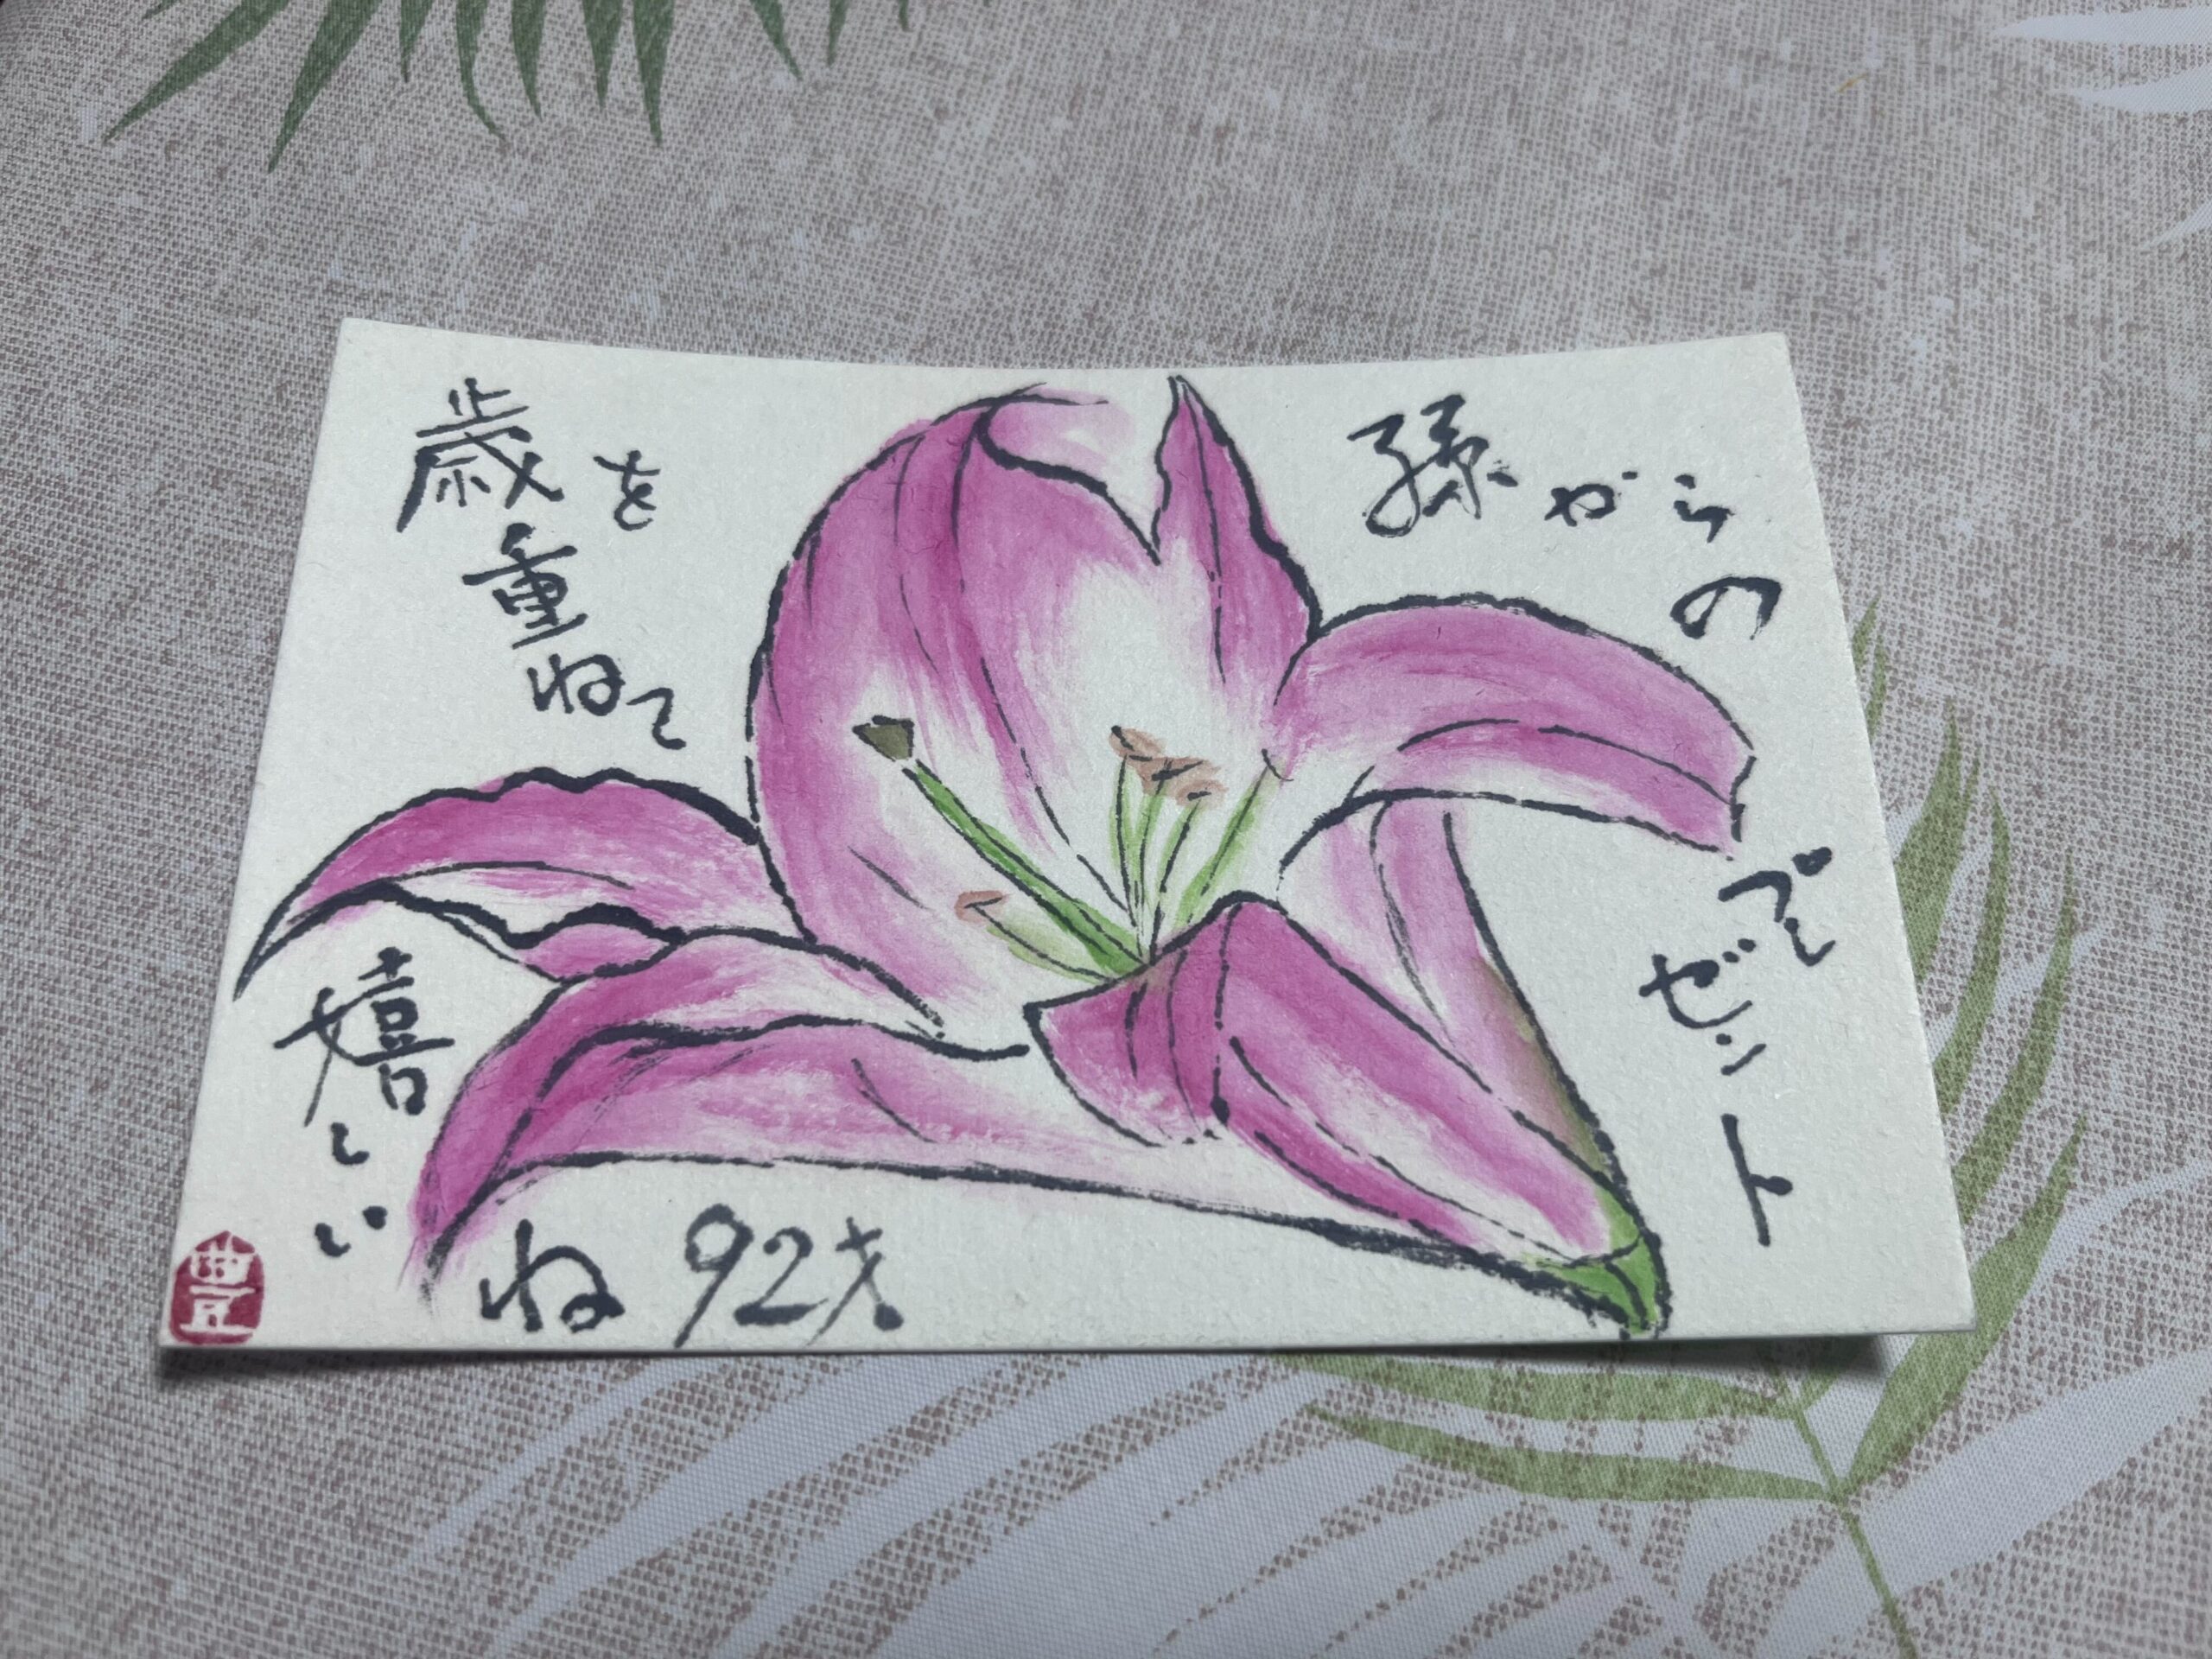 孫からの
プレゼント
歳を
重ねて
嬉しい
ね 92才
豊